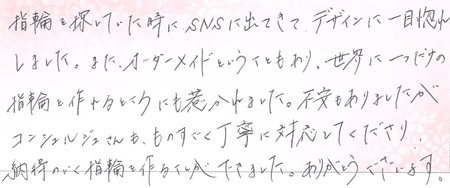 指輪を探していた時にSNSに出てきてデザインに一目惚れ
しました。また、オーダーメイドということもあり、世界に一つだけの
指輪を作れるところにも惹かれました。不安もありましたが
コンシェルジュさんも、ものすごく丁寧に対応してくださり、
納得のいく指輪を作ることができました。ありがとうございます。